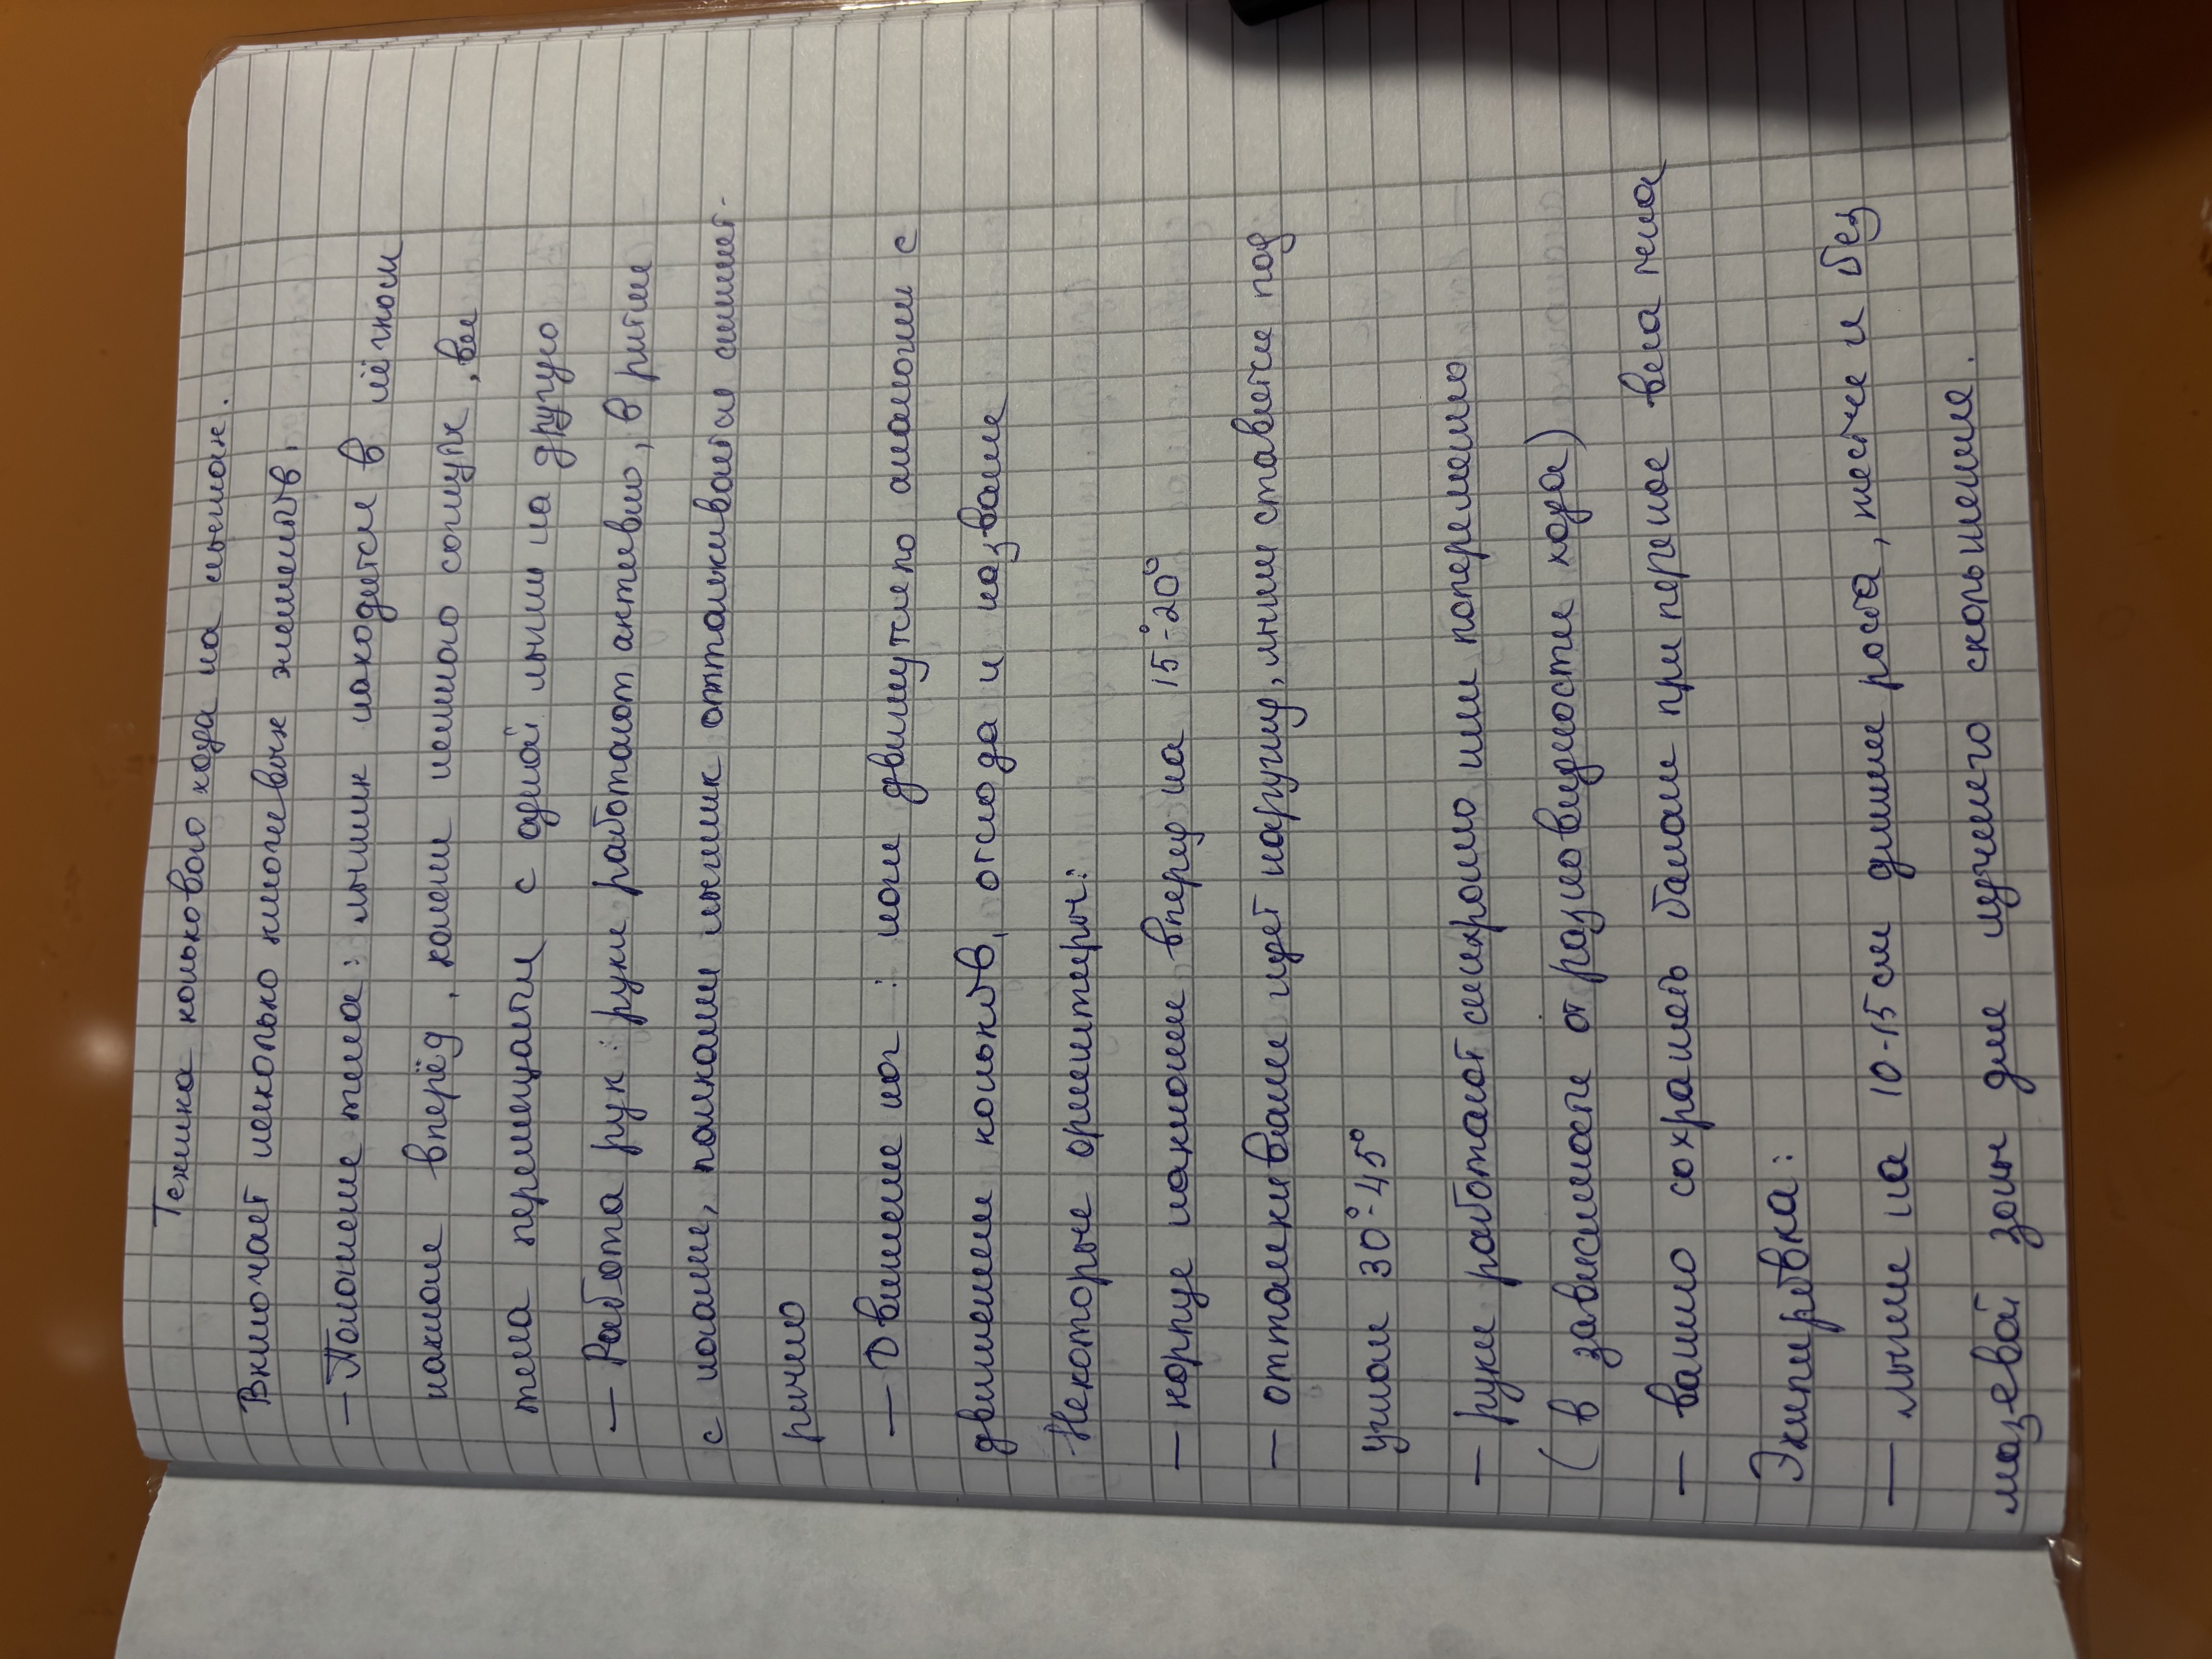 Техника конькового хода на лыжах.
Включает несколько ключевых элементов.
— Положение тела: лыжник находится в лёгком
наклоне вперёд, колени немного согнуты, вес
тела перемещаются с одной лыжи на другую
— Работа рук: руки работают активно, в ритме
с ногами, палками лыжник отталкивается симмет-
рично
— Движение ног: ноги движутся по аналогии с
движением коньков, отсюда и название
Некоторые ориентиры:
— корпус наклонен вперед на 15°-20°
— отталкивание идет наружу, лыжи ставится под
углом 30°-45°
— руки работают синхронно или попеременно
(в зависимости от разновидности хода)
— важно сохранять баланс при переносе веса тела
Экипировка:
— лыжи на 10-15 см длинее роста, жестче и без
мазевой зоны для лучшего скольжения.